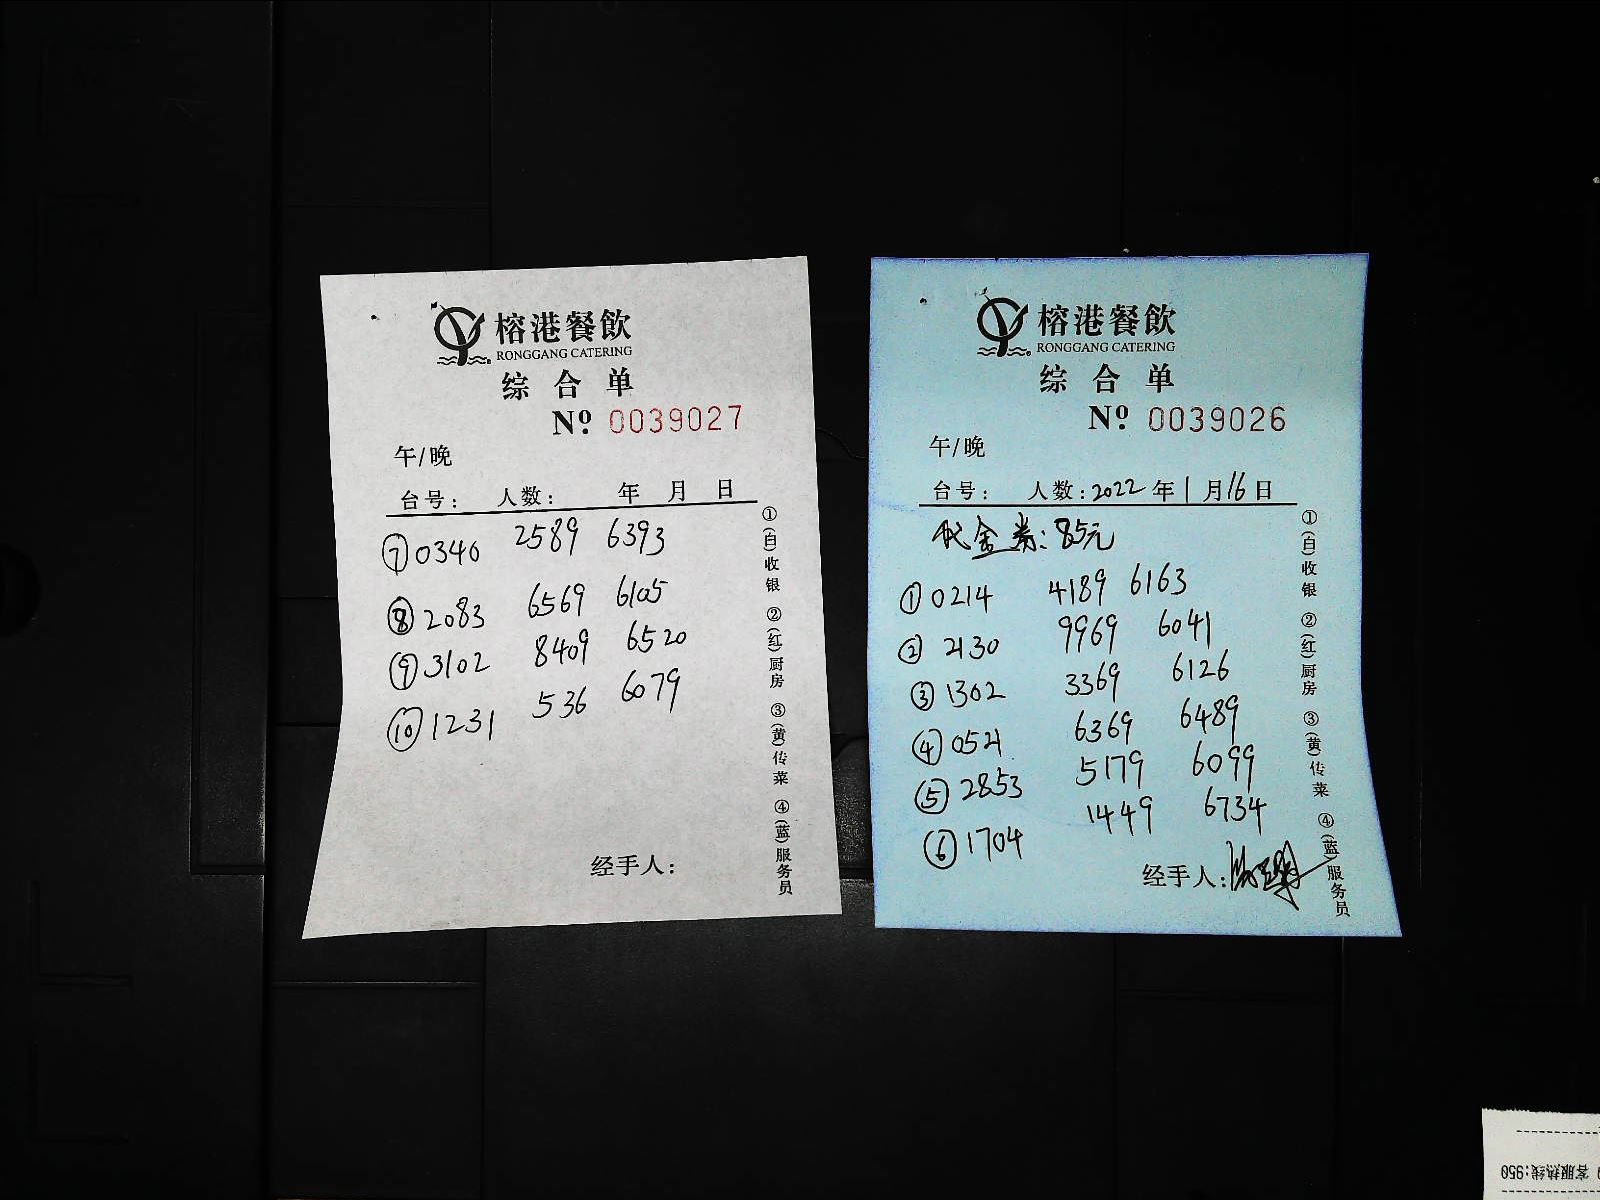 榕港餐飲
RONGGANG CATERING
综合单
Nº 0039027
午/晚
台号： 人数： 年 月 日
⑦ 0346 2589 6393
⑧ 2083 6569 6105
⑨ 3102 8409 6520
⑩ 1231 536 6079
经手人：
①(白)收银 ②(红)厨房 ③(黄)传菜 ④(蓝)服务员
榕港餐飲
RONGGANG CATERING
综合单
Nº 0039026
午/晚
台号： 人数：2022年1月16日
代金券：85元
① 0214 4189 6163
② 2130 9969 6041
③ 1302 3369 6126
④ 0521 6369 6489
⑤ 2853 5179 6099
⑥ 1704 1449 6734
经手人：
①(白)收银 ②(红)厨房 ③(黄)传菜 ④(蓝)服务员
客服热线:950